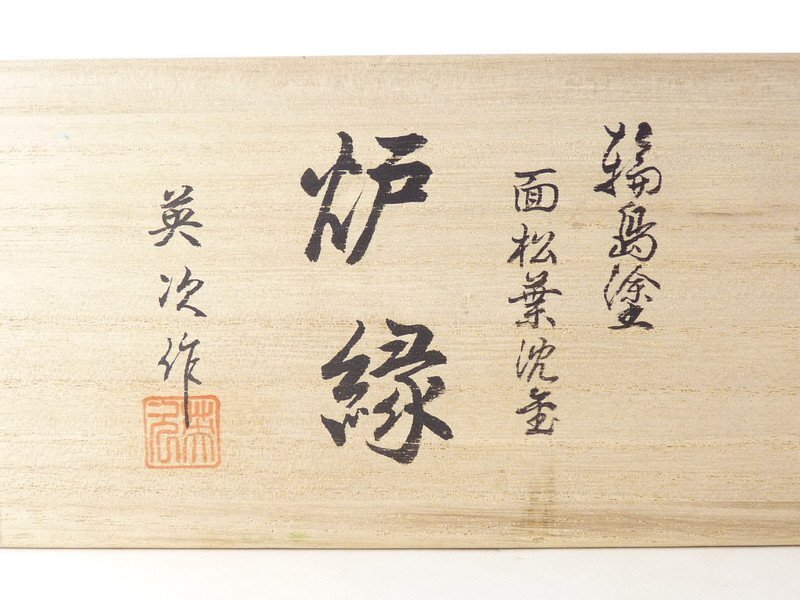 輪島塗
面松葉沈金
炉縁
英次作